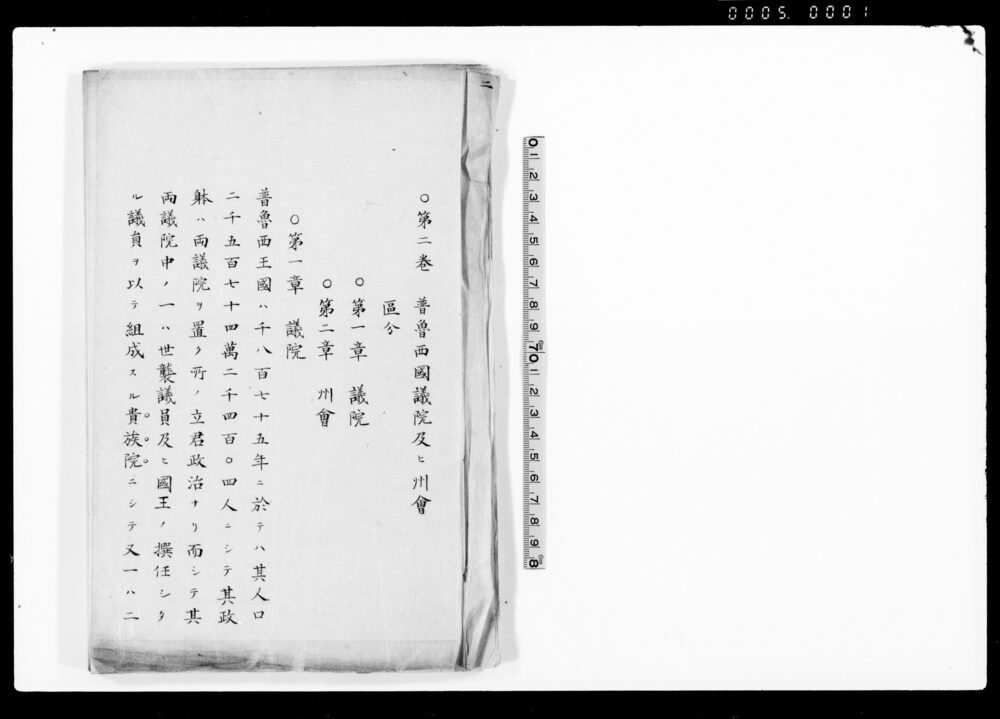 0005. 0001
二
○第二巻　普魯西國議院及ヒ州會
區分
○第一章　議院
○第二章　州會
○第一章　議院
普魯西王國ハ千八百七十五年ニ於テハ其人口
二千五百七十四萬二千四百○四人ニシテ其政
躰ハ両議院ヲ置ク所ノ立君政治ナリ而シテ其
両議院中ノ一ハ世襲議員及ヒ國王ノ撰任シタ
ル議員ヲ以テ組成スル貴族院ニシテ又一ハ二
0 1 2 3 4 5 6 7 8 9 10 1 2 3 4 5 6 7 8 9